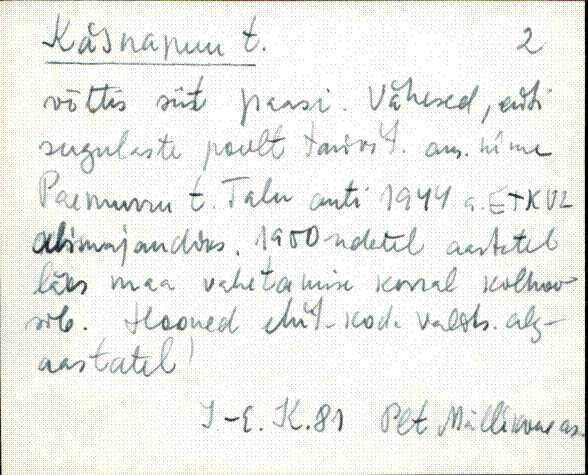 Käsnapuu t. 2
võttis siit paasi. Vähesed, eriti
sugulaste poolt tarvit. ām. nime
Paemurru t. Talu anti 1944 a. ETKVL
abimajandiks. 1950-ndatel aastatel
läks maa vahetamise korral kolhoo-
sile. Hooned ehit. kod. valits. alg-
aastatel!
J.-E. K.81 Plt Mällikvere as.